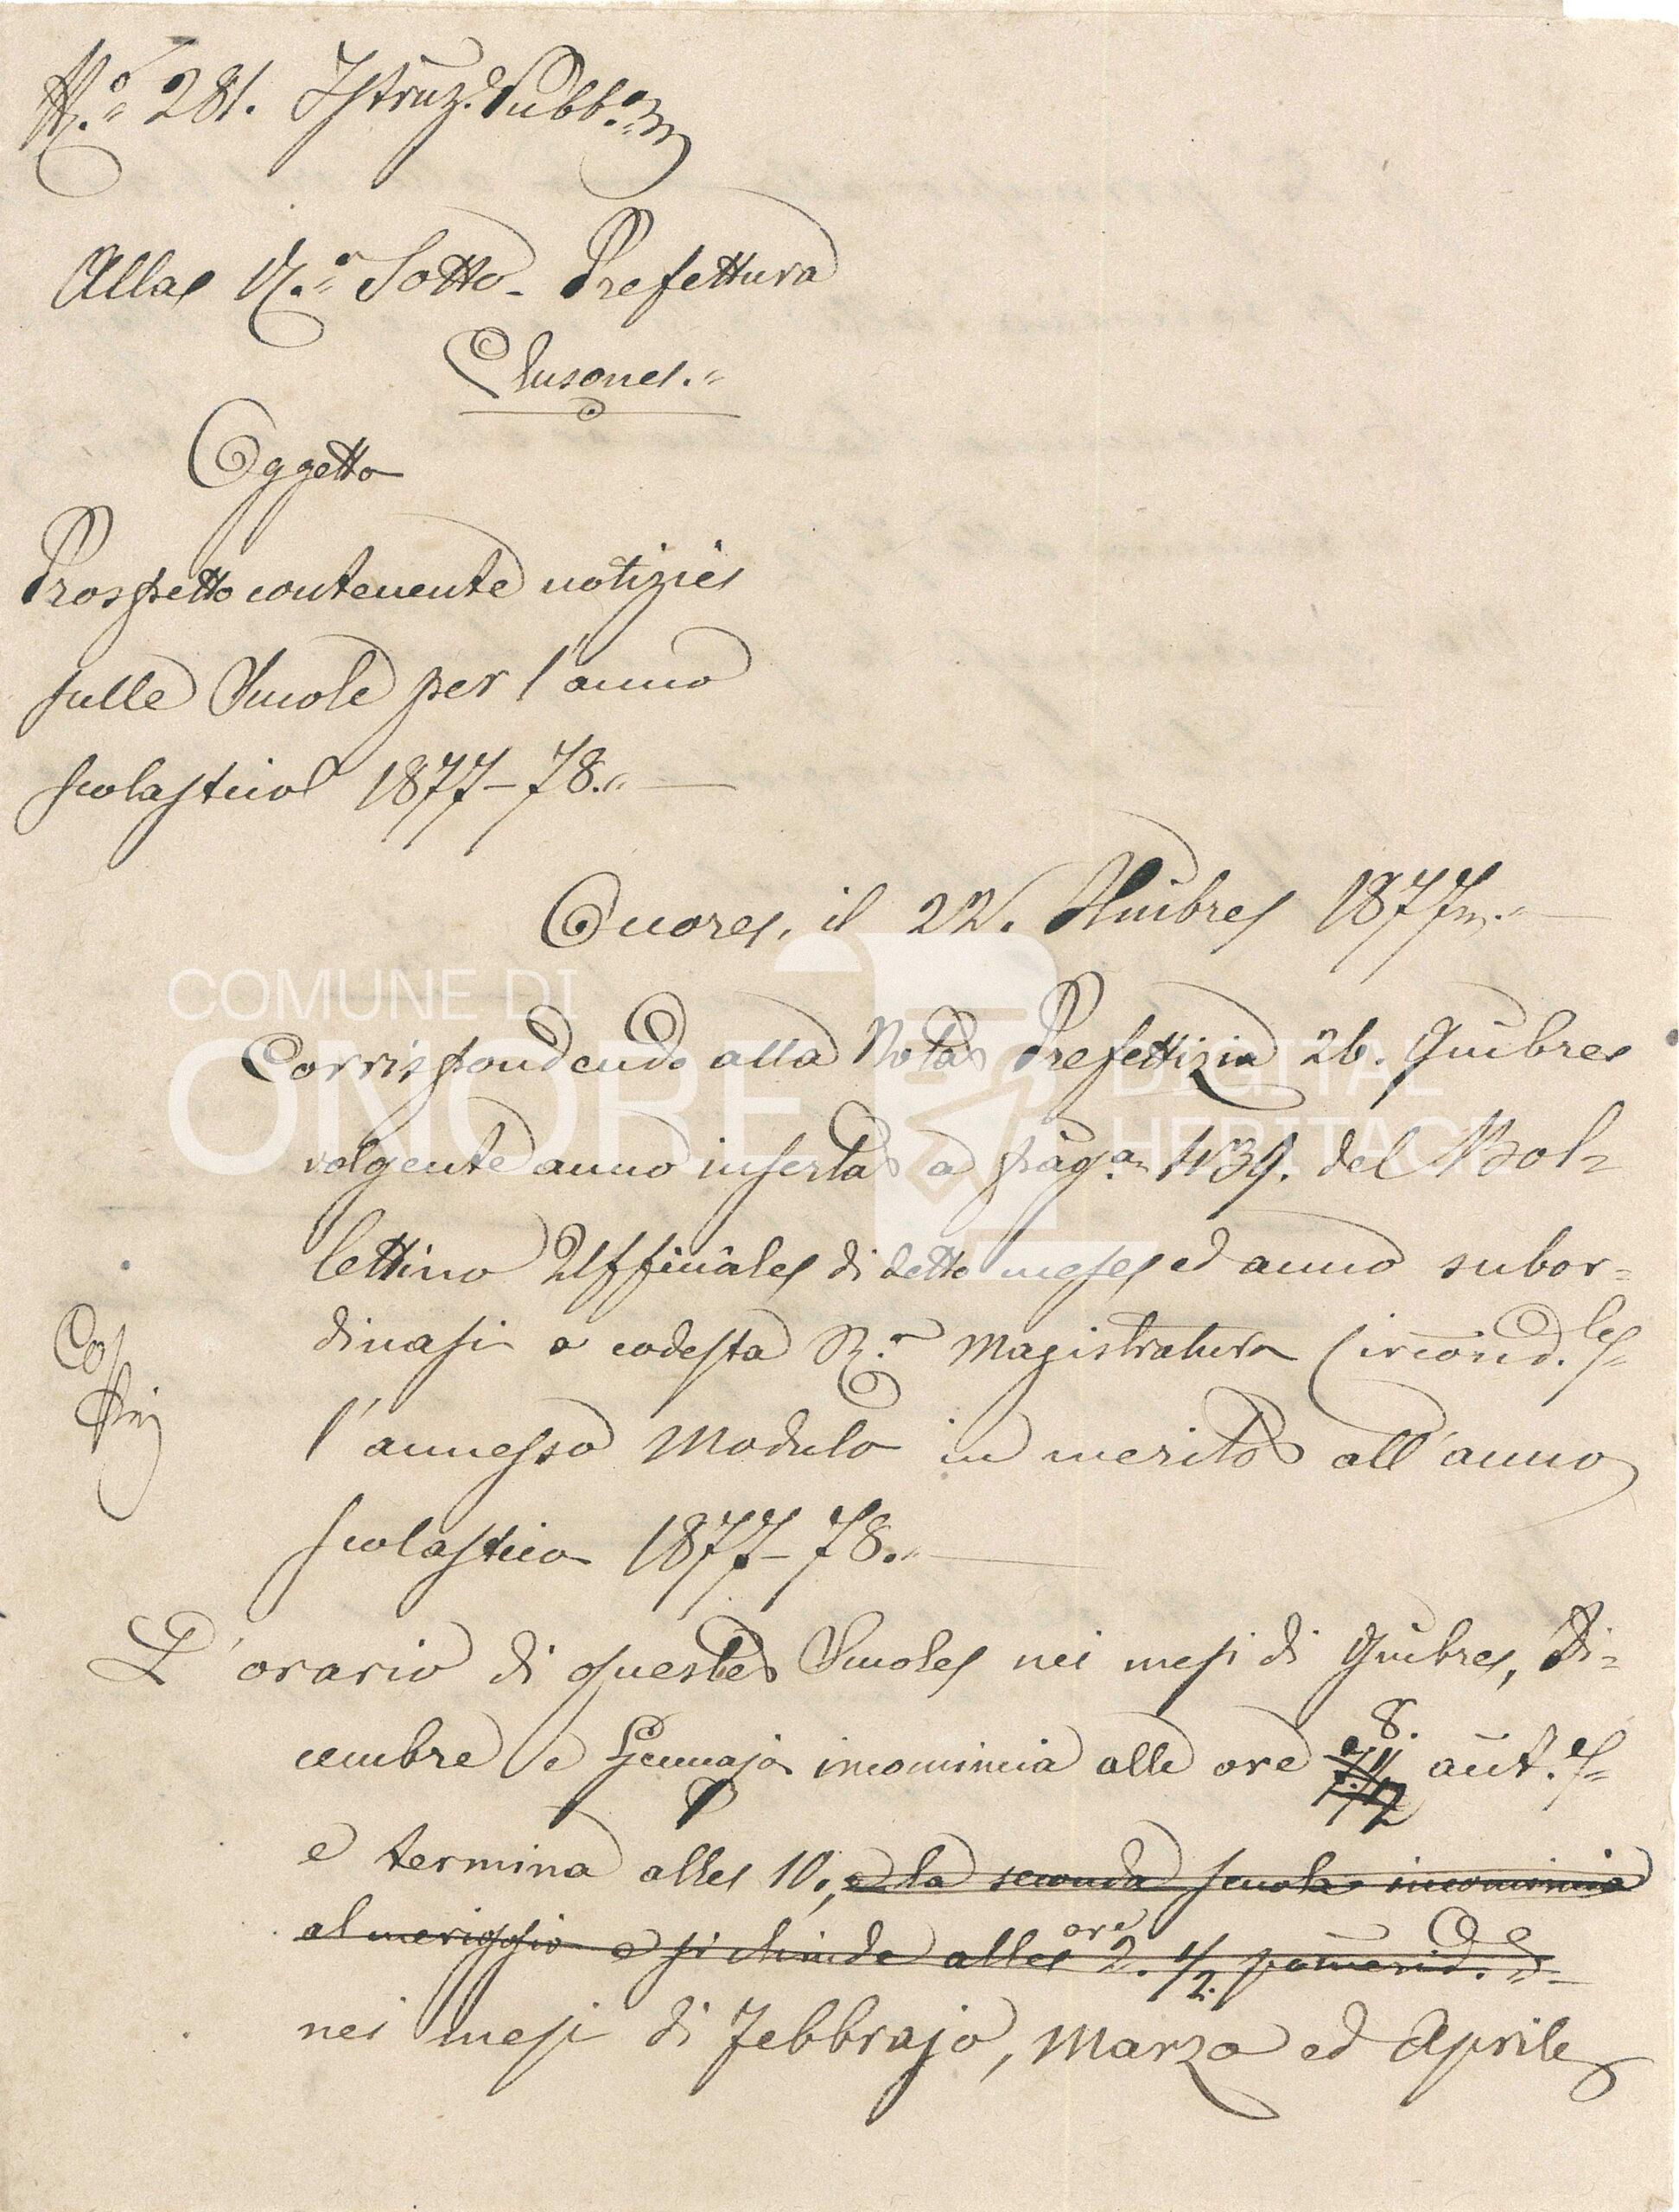 N.° 281. Istruz. Pubb.a
Alla R.a Sotto-Prefettura
Clusone.
Oggetto
Prospetto contenente notizie
sulle Scuole per l'anno
scolastico 1877-78.
Onore, il 22. 1877.
COMUNE DI
ONORE
DIGITAL
HERITAGE
Corrispondendo alla Nota Prefettizia 26.
volgente anno inserta a pag.a 439. del Bol=
lettino Ufficiale di detto mese ed anno subor=
dinasi a codesta R.a Magistratura Circond.le
l'annesso Modulo in merito all'anno
scolastico 1877-78.
Copia
L'orario di queste Scuole nei mesi di 9mbre, Di=
cembre e Gennajo incomincia alle ore 8. ant.e
e termina alle 10., e la seconda scuola incomincia
al meriggio e si chiude alle ore 2. 1/2 pomerid.e
nei mesi di Febbrajo, Marzo ed Aprile